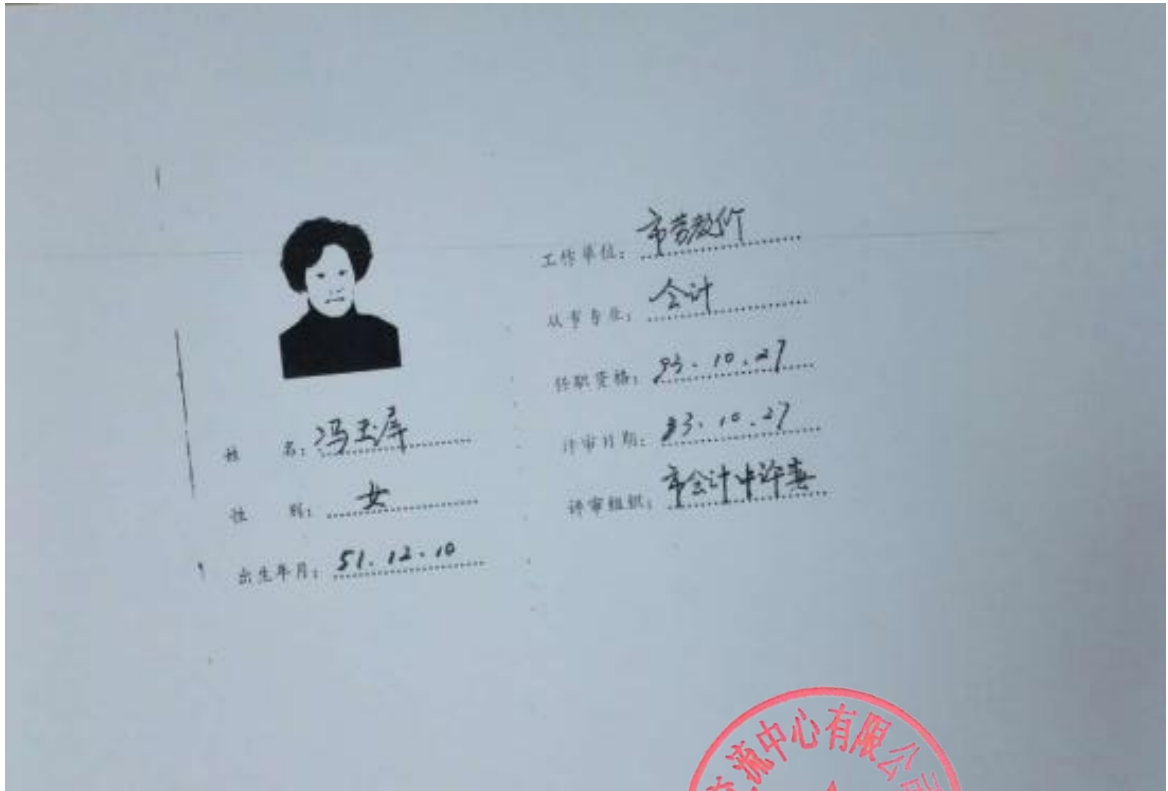 姓 名：冯玉屏
性 别：女
出生年月：51.12.10
工作单位：市劳教所
从事专业：会计
任职资格：93.10.27
评审日期：93.10.27
评审组织：市会计中评委
流中心有限公司